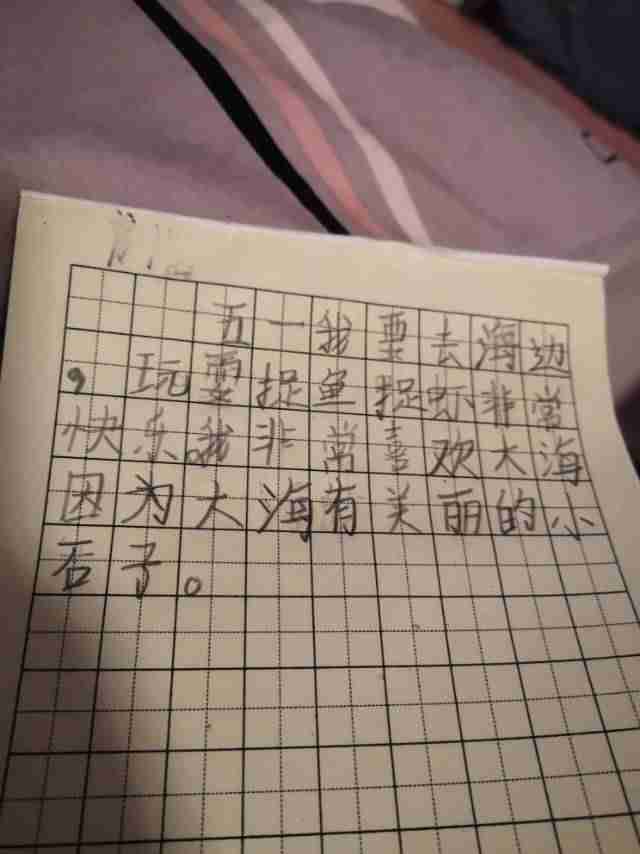 五一我要去海边
，玩耍捉鱼捉虾非常
快乐。我非常喜欢大海
因为大海有美丽的小
石子。